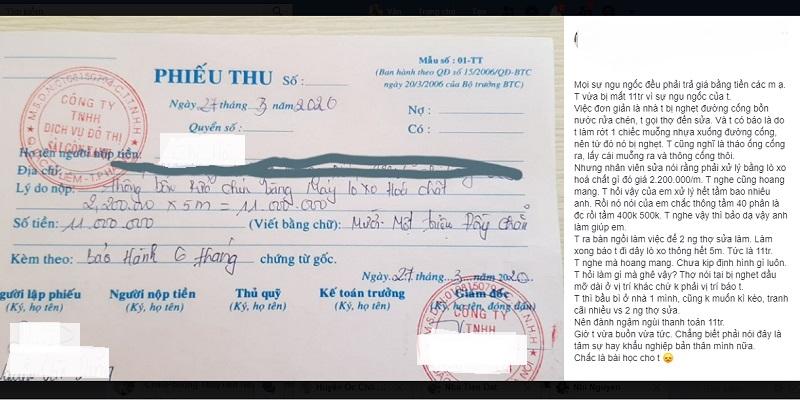 PHIẾU THU Số:
Mẫu số : 01-TT
(Ban hành theo QĐ số 15/2006/QĐ-BTC
ngày 20/3/2006 của Bộ trưởng BTC)
Ngày 27 tháng 3 năm 2020
Quyển số:
Nợ :
Có :
CÔNG TY
TNHH
DỊCH VỤ ĐÔ THỊ
Họ tên người nộp tiền:
Địa chỉ:
Lý do nộp: Thông bồn rửa chén bằng Máy lò xo Hoá chất
2,200.000 x 5m = 11.000.000
Số tiền: 11.000.000 (Viết bằng chữ): Mười Một triệu Đồng Chẵn
Kèm theo: bảo Hành 6 tháng chứng từ gốc.
Ngày 27 tháng 3 năm 2020
Người lập phiếu Người nộp tiền Thủ quỹ Kế toán trưởng Giám đốc
(Ký, họ tên) (Ký, họ tên) (Ký, họ tên) (Ký, họ tên) (Ký, họ tên, đóng dấu)
CÔNG TY
TNHH
Mọi sự ngu ngốc đều phải trả giá bằng tiền các m ạ.
T vừa bị mất 11tr vì sự ngu ngốc của t.
Việc đơn giản là nhà t bị nghẹt đường cống bồn
nước rửa chén, t gọi thợ đến sửa. Và t có báo là do
t làm rớt 1 chiếc muỗng nhựa xuống đường cống,
nên từ đó nó bị nghẹt. T cũng nghĩ là tháo ống cống
ra, lấy cái muỗng ra và thông cống thôi.
Nhưng nhân viên sửa nói rằng phải xử lý bằng lò xo
hoá chất gì đó giá 2.200.000/m. T nghe cũng hoang
mang. T hỏi vậy của em xử lý hết tầm bao nhiêu
anh. Rồi nó nói của em chắc thông tầm 40 phân là
đc rồi tầm 400k 500k. T nghe vậy thì bảo dạ vậy anh
làm giúp em.
T ra bàn ngồi làm việc để 2 ng thợ sửa làm. Làm
xong báo t đi dây lò xo thông hết 5m. Tức là 11tr.
T nghe mà hoang mang. Chưa kịp định hình gì luôn.
T hỏi làm gì mà ghê vậy? Thợ nói tại bị nghẹt dầu
mỡ dài ở vị trí khác chứ k phải vị trí báo t.
T thì bầu bì ở nhà 1 mình, cũng k muốn kì kèo, tranh
cãi nhiều vs 2 ng thợ sửa.
Nên đành ngậm ngùi thanh toán 11tr.
Giờ t vừa buồn vừa tức. Chẳng biết phải nói đây là
tâm sự hay khẩu nghiệp bản thân mình nữa.
Chắc là bài học cho t 😞